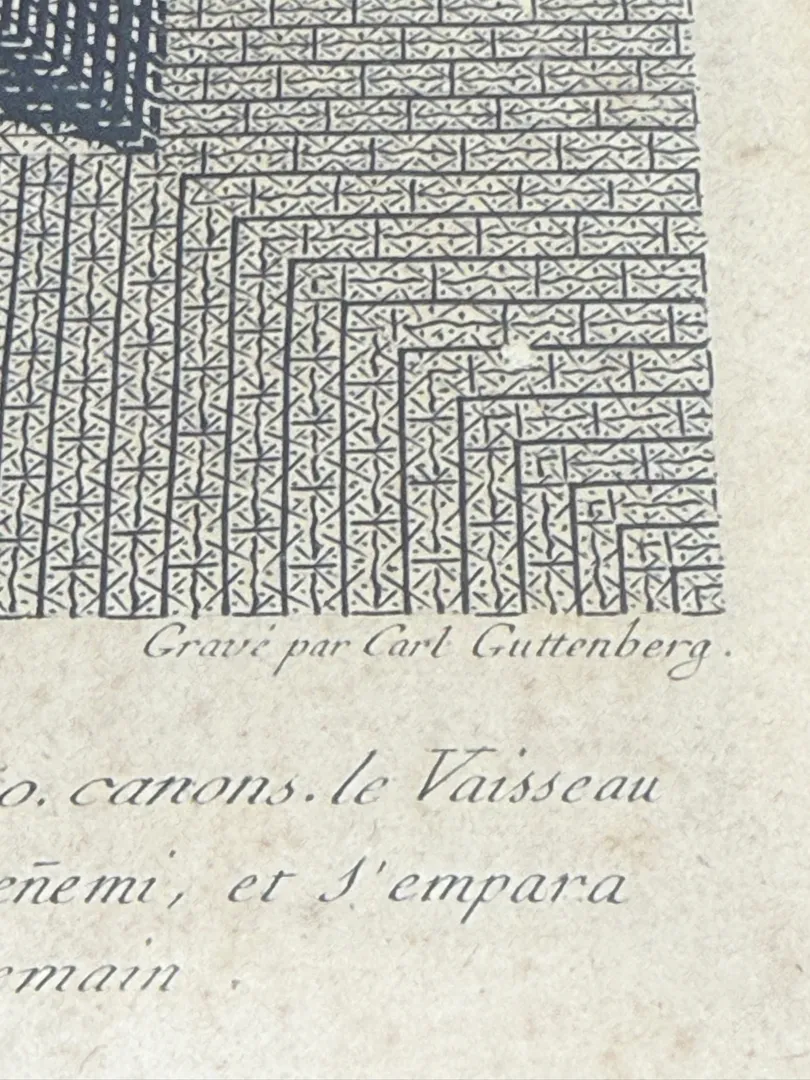 Gravé par Carl Guttenberg.
o. canons. le Vaisseau
eñemi, et s'empara
emain.